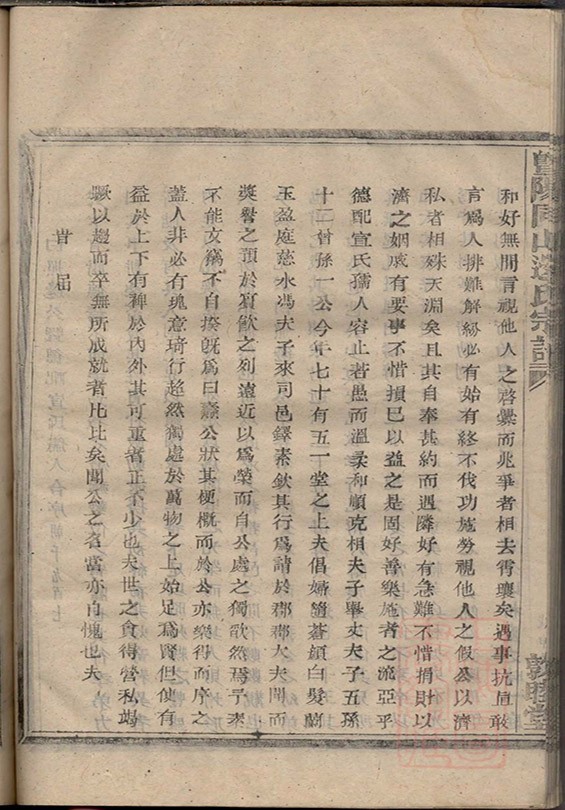 暨陽同山邊氏宗譜
敦睦堂
和好無間言視他人之啓釁而兆爭者相去霄壤矣遇事抗直敢
言爲人排難解紛必有始有終不伐功施勞視他人之假公以濟
私者相殊天淵矣且其自奉甚約而遇隣好有急難不惜捐財以
濟之姻戚有要事不惜損已以益之是固好善樂施者之流亞乎
德配宣氏孺人容止若愚而溫柔和順克相夫子畢丈夫子五孫
十二曾孫一公今年七十有五一堂之上夫倡婦隨蒼顔白髮蘭
玉盈庭慈水馮夫子來司邑鐸素欽其行爲請於郡郡大夫聞而
奬譽之預於賓飲之列遠近以爲榮而自公處之獨欿然焉予來
不能文竊不自揆旣爲曰 公狀其梗概而於公亦樂得而序之
蓋人非必有瑰意琦行超然獨處於萬物之上始足爲賢但使有
益於上下有裨於內外其可重者正不少也夫世之貪得營私竭
蹶以趨而卒無所成就者比比矣聞公之名當亦自愧也夫
昔屆